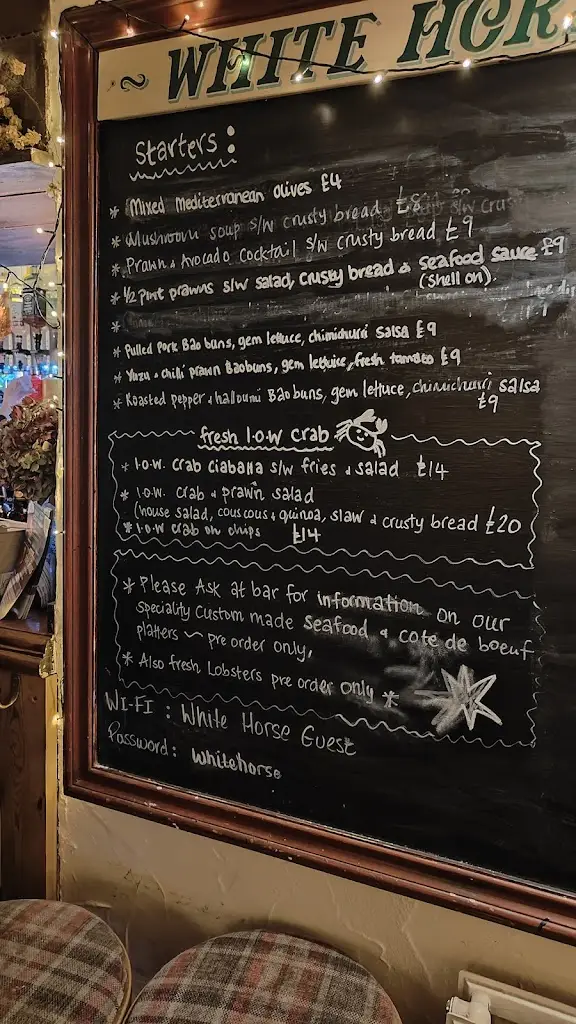 ~ WHITE HOR
Starters:
* Mixed Mediterranean Olives £4
* Mushroom soup s/w crusty bread £8
* Prawn & Avocado Cocktail s/w crusty bread £9
* 1/2 pint prawns s/w salad, crusty bread & seafood sauce £9
(shell on).
*
* Pulled pork Bao buns, gem lettuce, chimichurri salsa £9
* Yuzu & chilli prawn Baobuns, gem lettuce, fresh tomato £9
* Roasted pepper & halloumi Baobuns, gem lettuce, chimichurri salsa
£9
fresh I.O.W crab
* I.O.W. crab ciabatta s/w fries & salad £14
* I.O.W. crab & prawn salad
(house salad, couscous & quinoa, slaw & crusty bread £20
* I.O.W crab on chips £14
* Please Ask at bar for information on our
speciality custom made Seafood & cote de boeuf
platters ~ pre order only,
* Also fresh Lobsters pre order only *
WI-FI : White Horse Guest
Password: whitehorse